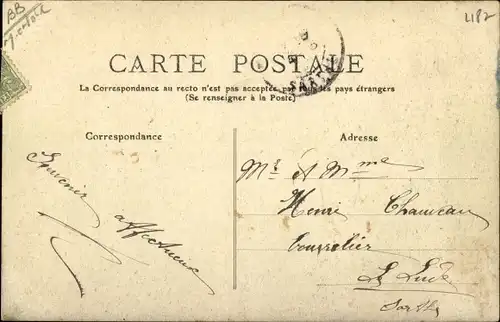 BB
4182
CARTE POSTALE
La Correspondance au recto n'est pas acceptée par tous les pays étrangers
(Se renseigner à la Poste)
Correspondance
Adresse
Souvenir
affectueux
Mr & Mme
Henri Chauveau
bourrelier
Le Lude
Sarthe